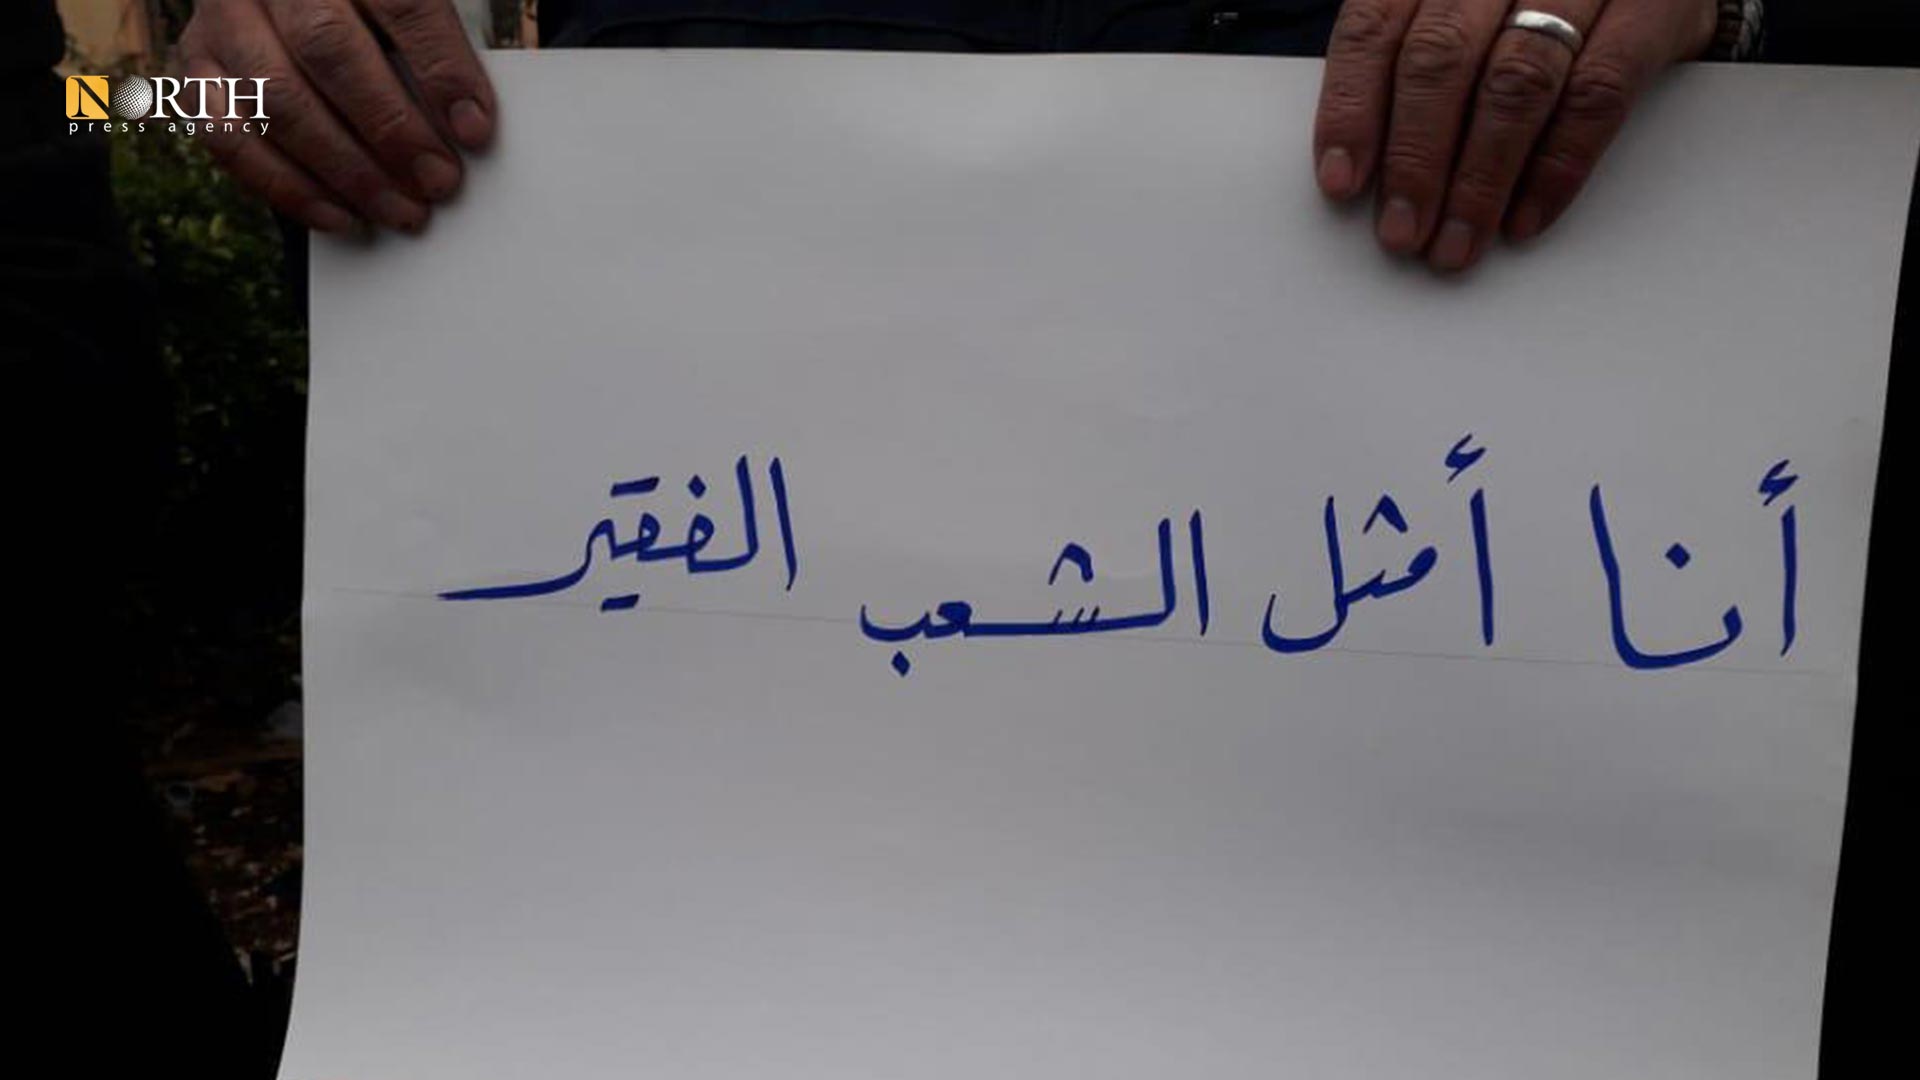 NORTH
press agency
أنا أمثل الشعب الفقير